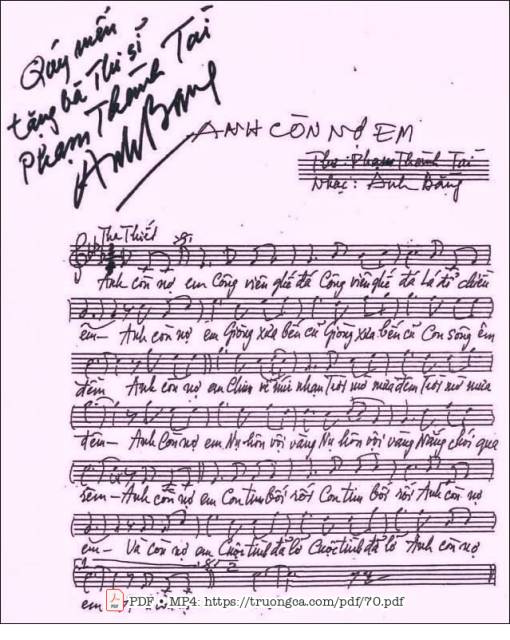 Quý mến
tặng bà Thi sĩ
Phạm Thành Tài
Anh Bằng
ANH CÒN NỢ EM
Thơ: Phạm Thành Tài
Nhạc: Anh Bằng
Tha Thiết
Anh còn nợ em Công viên ghế đá Công viên ghế đá Lá đổ chiều
êm- Anh còn nợ em Giòng xưa bến cũ Giòng xưa bến cũ Con sông êm
đềm Anh còn nợ em Chim về núi nhạn Trời mờ mưa đêm Trời mờ mưa
đêm- Anh còn nợ em Nụ hôn vội vàng Nụ hôn vội vàng Nắng chói qua
rèm- Anh còn nợ em Con tim bối rối Con tim bối rối Anh còn nợ
em- Và còn nợ em Cuộc tình đã lỡ Cuộc tình đã lỡ Anh còn nợ
1. 2
em
PDF • MP4: https://truongca.com/pdf/70.pdf